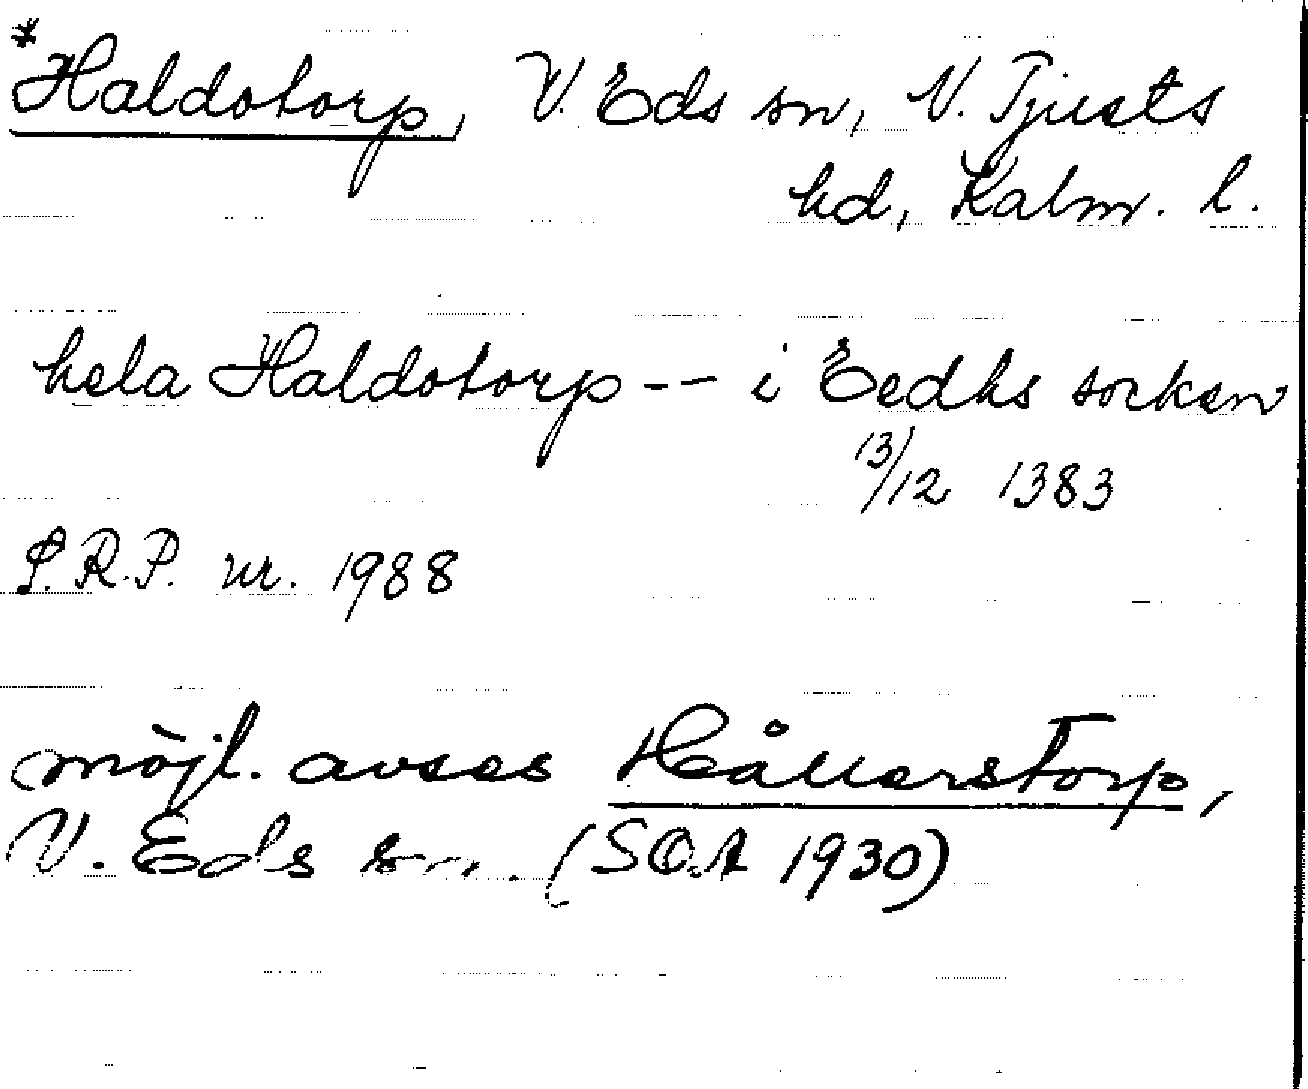 *Haldotorp, V. Eds sn, N. Tjusts
hd, Kalm. l.
hela Haldotorp -- i Eedhs sorken
13/12 1383
S.R.P. nr. 1988
möjl. avses Hållerstorp,
V. Eds sn. (SOA 1930)